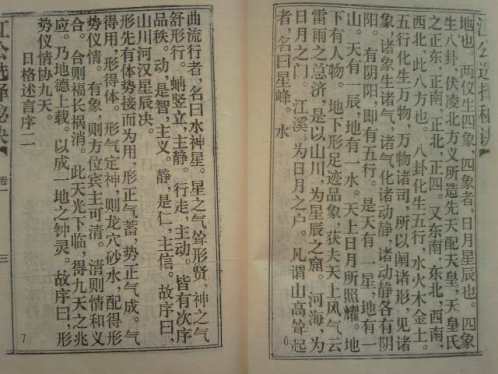 江公选择秘诀
地也。两仪生四象，四象者，日月星辰也。四象
生八卦，伏凌北方义所造先天配天皇，天皇氏
之正东，正南，正北，正四。又东南，东北，西南，
西北，此八方也。八卦化生五行，水火木金土。
五行化生万物，万物诸司，所以阐诸形，见诸
象，诸象生诸气，诸气化诸动静，诸动静各有阴
阳。有阴阳，即有五行。是天有一星，地有一
山。天有一辰，地有一水。天上日月所照耀。地
下有人物。地下形足迹品象，获夫天上风气云
雷雨之慈济。是以山川，为星辰之窟。河海，为
日月之门。江溪，为日月之户。凡谓山高耸起
者，名曰星峰。水
6
曲流行者，名曰水神星。星之气耸形贤，神之气
舒形行。蛹竖立，主静。行走，主动。皆有次序
品秩。动，是智，主义。静，是仁，主信。故成于
山川河汉星辰决。
形先有体势接而为用，形正气蓄，势正气成。气
得用，形得体。形气定神，则龙穴砂水，配得形
势仪情。有象，则方位宾主可清。清则情和义
合。合则福长祸消。此天光下临，得九天之兆
应。乃地德上载。以成一地之钟灵。故序曰，形
势仪情协九天。
日格述言序二
7
江公选择秘诀
卷一
三